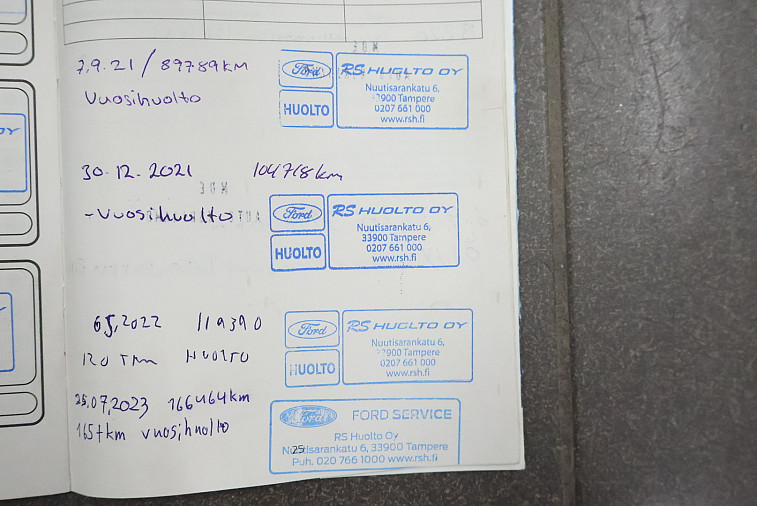 7.9.21 / 89789km
Vuosihuolto
Ford
HUOLTO
RS HUOLTO OY
Nuutisarankatu 6,
33900 Tampere
0207 661 000
www.rsh.fi
30.12.2021 104718km
-Vuosihuolto
Ford
HUOLTO
RS HUOLTO OY
Nuutisarankatu 6,
33900 Tampere
0207 661 000
www.rsh.fi
6.5.2022 119390
120 Tkm HUOLTO
Ford
HUOLTO
RS HUOLTO OY
Nuutisarankatu 6,
33900 Tampere
0207 661 000
www.rsh.fi
25.07.2023 166464km
165tkm vuosihuolto
Ford FORD SERVICE
RS Huolto Oy
Nuutisarankatu 6, 33900 Tampere
Puh. 020 766 1000 www.rsh.fi
25